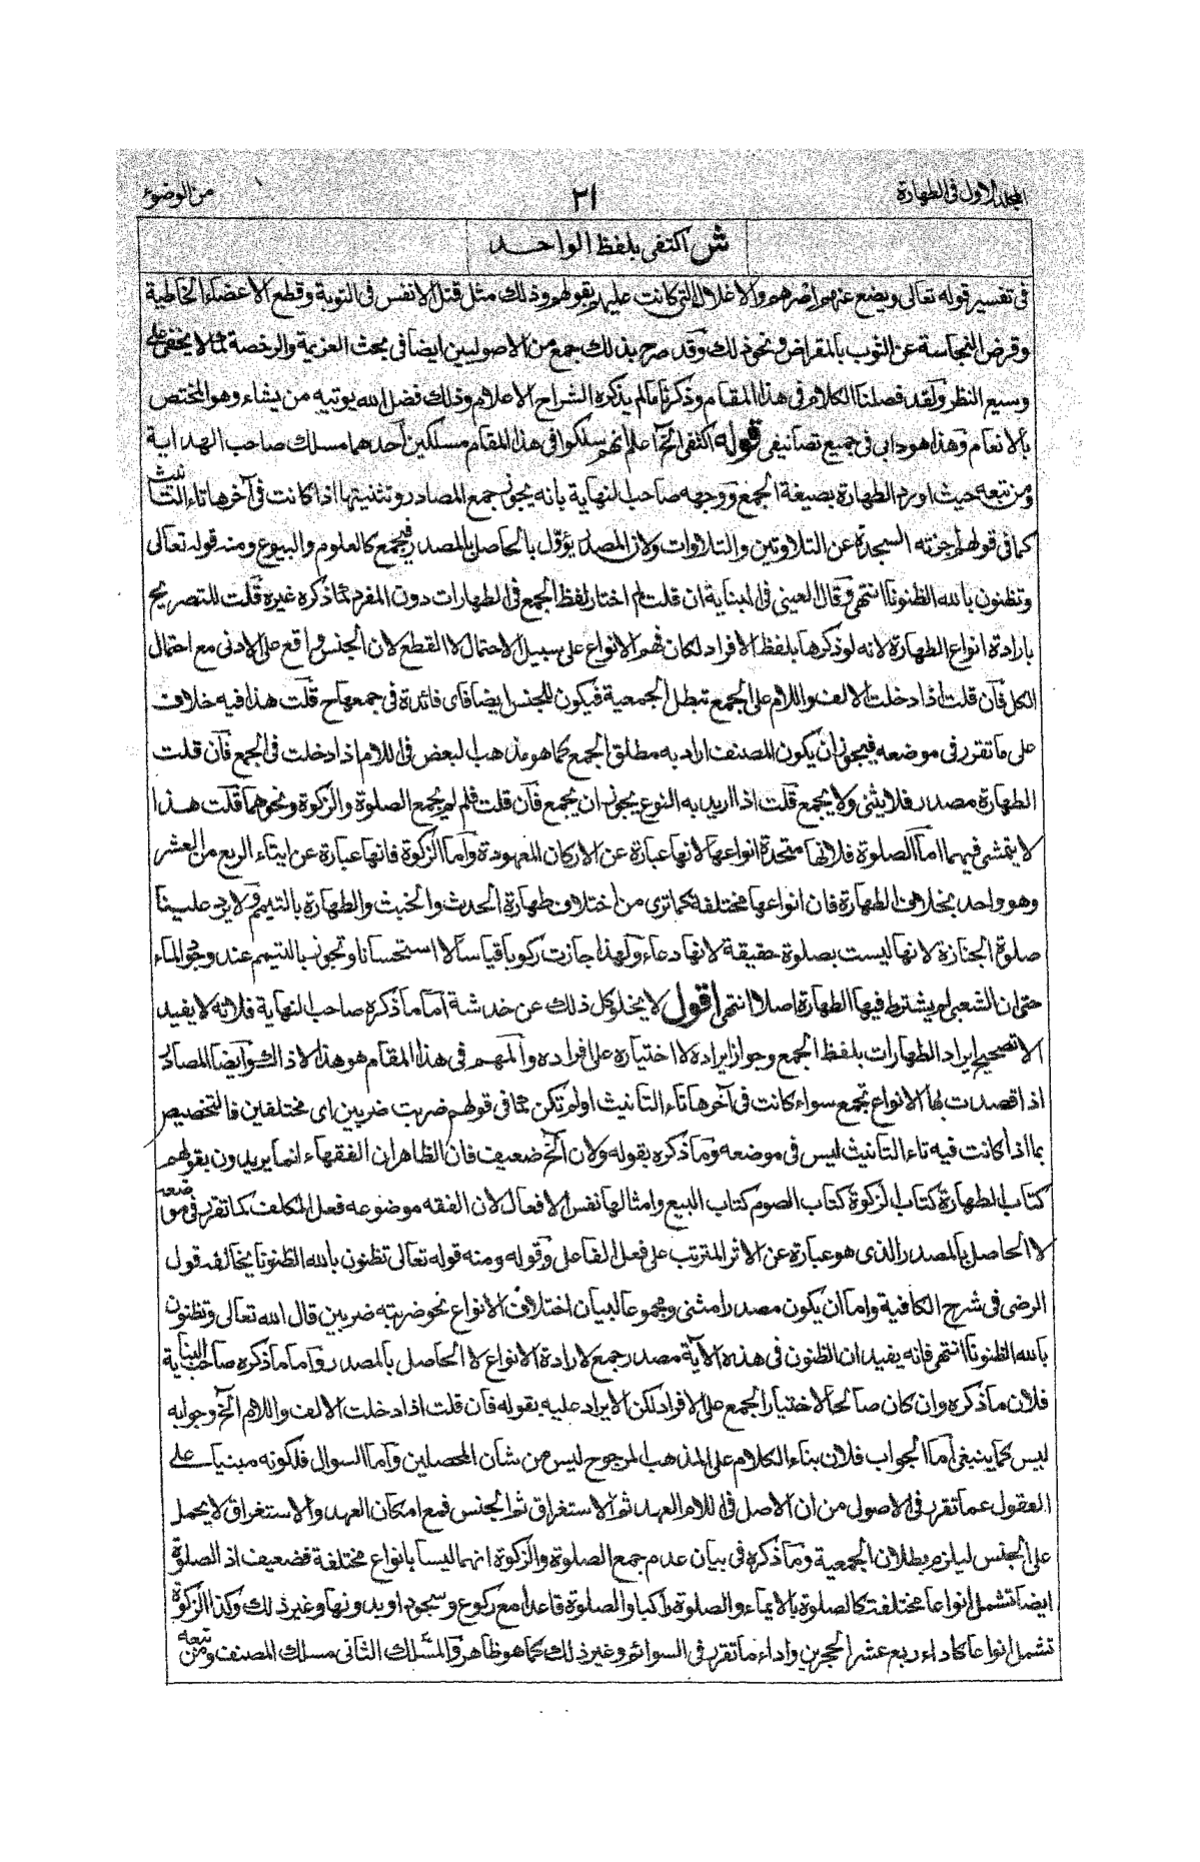 المجلد الاول فى الطهارة
٢١
من الوضوء
ش اكتفى بلفظ الواحد
فى تفسير قوله تعالى ويضع عنهم اصرهم والاغلال التى كانت عليهم بقولهم وذلك مثل قتل الانفس فى التوبة وقطع الاعضاء الخاطية
وقرض النجاسة عن الثوب بالمقراض ونحو ذلك وقد صرح بذلك جمع من الاصوليين ايضا فى بحث العزيمة والرخصة كما لا يخفى على
وسيع النظر ولقد فصلنا الكلام فى هذا المقام وذكرنا ما لم يذكره الشراح الاعلام وذلك فضل الله يوتيه من يشاء وهو المختص
بالانعام وهذا هو دابى فى جميع تصانيفى قوله اكتفى الخ اعلم انهم سلكوا فى هذا المقام مسلكين احدهما مسلك صاحب الهداية
ومن تبعه حيث اورد الطهارة بصيغة الجمع ووجهه صاحب النهاية بانه يجوز جمع المصادر وتثنيتها اذا كانت فى آخرها تاء التانيث
كما فى قولهم اجزته السجدة عن التلاوتين والتلاوات ولان المصدر يؤول بالحاصل بالمصدر فيجمع كالعلوم والبيوع ومنه قوله تعالى
وتظنون بالله الظنونا انتهى وقال العينى فى البناية ان قلت لم اختار لفظ الجمع فى الطهارات دون المفرد كما ذكره غيره قلت للتصريح
بارادة انواع الطهارة لانه لو ذكرها بلفظ الافراد لكان فهم الانواع على سبيل الاحتمال لا القطع لان الجنس واقع على الادنى مع احتمال
الكل فان قلت اذا دخلت الالف واللام على الجمع تبطل الجمعية فيكون للجنس ايضا فاى فائدة فى جمعها ح قلت هذا فيه خلاف
على ما تقرر فى موضعه فيجوز ان يكون المصنف اراد به مطلق الجمع كما هو مذهب البعض فى اللام اذا دخلت فى الجمع فان قلت
الطهارة مصدر فلا يثنى ولا يجمع قلت اذا اريد به النوع يجوز ان يجمع فان قلت فلم لم يجمع الصلوة والزكوة ونحوهما قلت هذا
لا يتمشى فيهما اما الصلوة فلانها متحدة انواعها لانها عبارة عن الاركان المعهودة واما الزكوة فانها عبارة عن ايتاء الربع من العشر
وهو واحد بخلاف الطهارة فان انواعها مختلفة كما ترى من اختلاف طهارة الحدث والخبث والطهارة بالتيمم ولا يرد علينا
صلوة الجنازة لانها ليست بصلوة حقيقة لانها دعاء ولهذا جازت ركوبا قياسا لا استحسانا وتجوز بالتيمم عند وجود الماء
حتى ان الشعبى لم يشترط فيها الطهارة اصلا انتهى اقول لا يخلو كل ذلك عن خدشة اما ما ذكره صاحب النهاية فلانه لا يفيد
الا تصحيح ايراد الطهارات بلفظ الجمع وجواز ايراده لا اختياره على افراده والمهم فى هذا المقام هو هذا لا ذاك وايضا المصادر
اذا قصدت بها الانواع تجمع سواء كانت فى آخرها تاء التانيث او لم تكن كما فى قولهم ضربت ضربين اى مختلفين فالتخصيص
بما اذا كانت فيه تاء التانيث ليس فى موضعه وما ذكره بقوله ولان الخ ضعيف فان الظاهر ان الفقهاء انما يريدون بقولهم
كتاب الطهارة كتاب الزكوة كتاب الصوم كتاب البيع وامثالها نفس الافعال لان الفقه موضوعه فعل المكلف كما تقرر فى موضعه
لا الحاصل بالمصدر الذى هو عبارة عن الاثر المترتب على فعل الفاعل وقوله ومنه قوله تعالى تظنون بالله الظنونا يخالفه قول
الرضى فى شرح الكافية واما ان يكون مصدرا مثنى ومجموعا لبيان اختلاف الانواع نحو ضربته ضربين قال الله تعالى وتظنون
بالله الظنونا انتهى فانه يفيد ان الظنون فى هذه الآية مصدر جمع لارادة الانواع لا الحاصل بالمصدر واما ما ذكره صاحب البناية
فلان ما ذكره وان كان صالحا لاختيار الجمع على الافراد لكن الايراد عليه بقوله فان قلت اذا دخلت الالف واللام الخ وجوابه
ليس كما ينبغى اما الجواب فلان بناء الكلام على المذهب المرجوح ليس من شان المحصلين واما السوال فلكونه مبنيا على
العقول عما تقرر فى الاصول من ان الاصل فى اللام العهد ثم الاستغراق ثم الجنس فمع امكان العهد والاستغراق لا يحمل
على الجنس ليلزم بطلان الجمعية وما ذكره فى بيان عدم جمع الصلوة والزكوة انهما ليسا بانواع مختلفة فضعيف اذ الصلوة
ايضا تشمل انواعا مختلفة كالصلوة بالايماء والصلوة راكبا والصلوة قاعدا مع ركوع وسجود او بدونها وغير ذلك وكذا الزكوة
تشمل انواعا كاداء ربع عشر الحجرين واداء ما تقرر فى السوائم وغير ذلك كما هو ظاهر والمسلك الثانى مسلك المصنف ومن تبعه